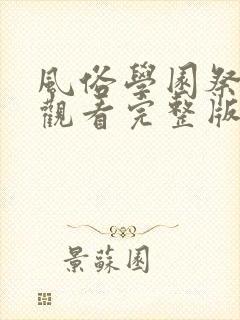 風俗學園祭
觀看完整版
景蘇園